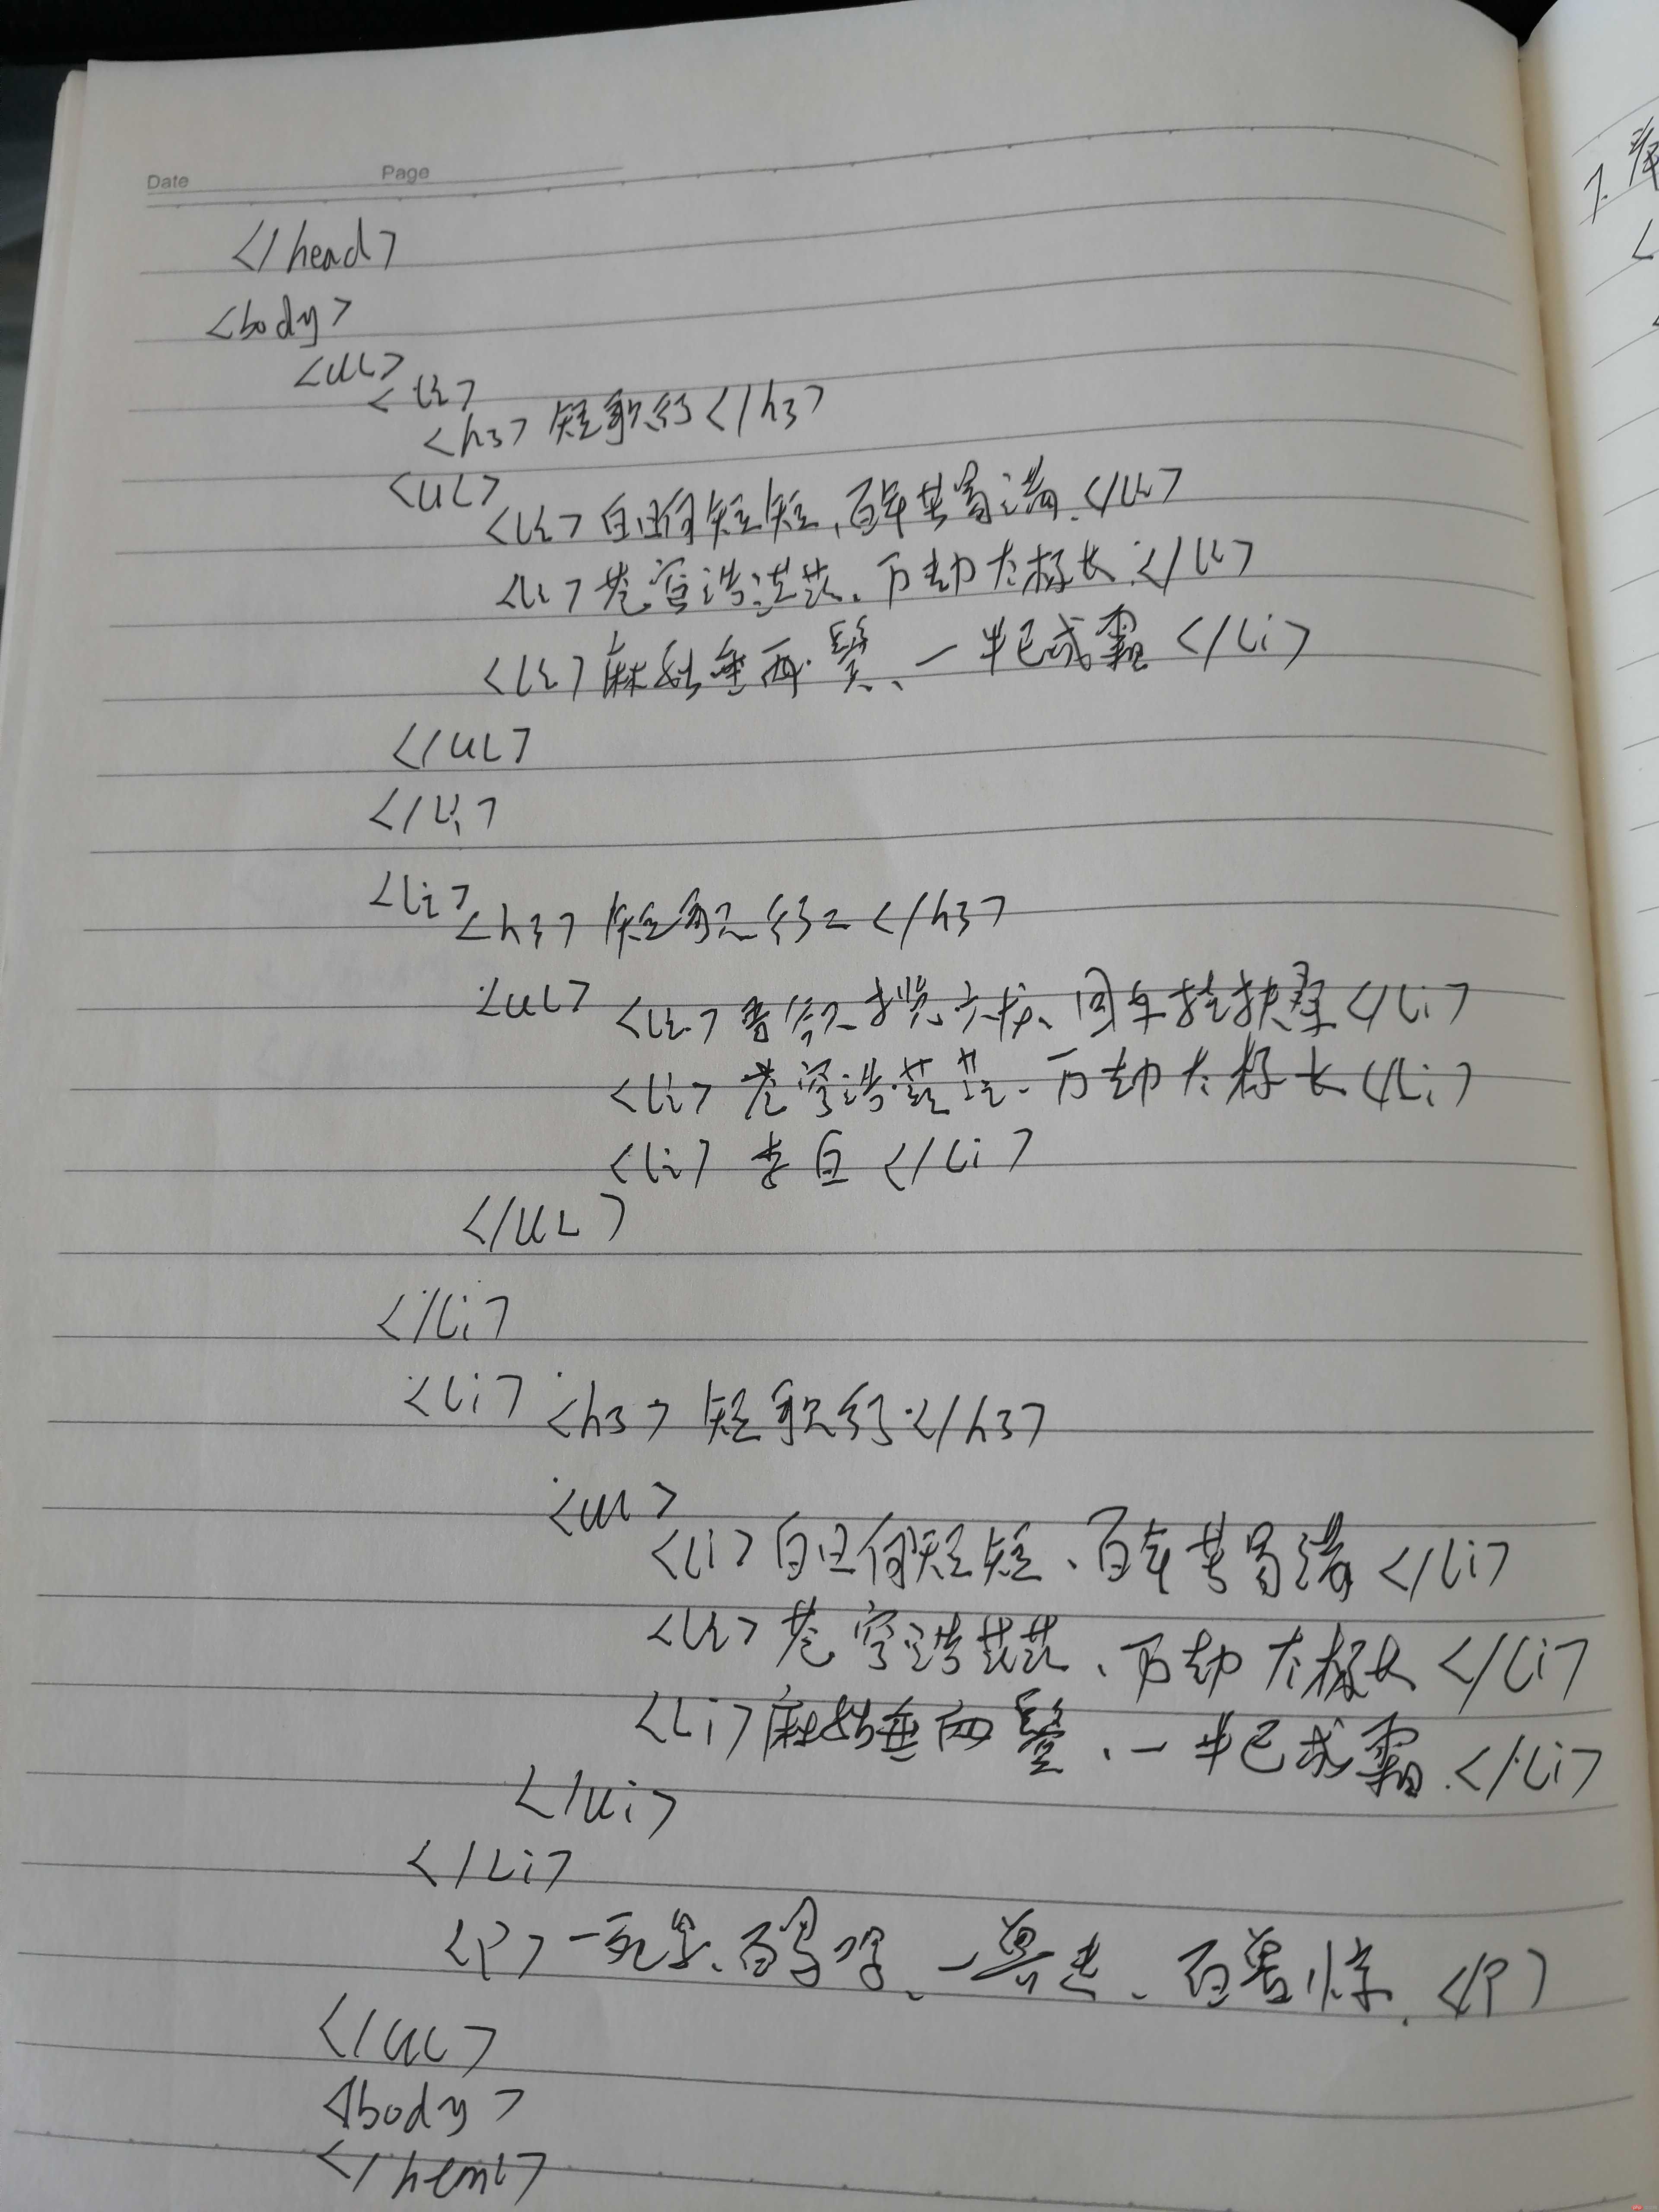 Date Page
</head>
<body>
<ul>
<li>
<h3>短歌行</h3>
<ul>
<li>白日何短短,百年苦易满.</li>
<li>苍穹浩茫茫、万劫太极长.</li>
<li>麻姑垂两鬓、一半已成霜</li>
</ul>
</li>
<li>
<h3>短歌行2</h3>
<ul>
<li>吾欲揽六龙、回车挂扶桑</li>
<li>苍穹浩茫茫、万劫太极长</li>
<li>李白</li>
</ul>
</li>
<li>
<h3>短歌行</h3>
<ul>
<li>白日何短短、百年苦易满</li>
<li>苍穹浩茫茫、万劫太极长</li>
<li>麻姑垂两鬓、一半已成霜.</li>
</ui>
</li>
<P>一 百鸟 、一兽走、百兽惊.</P>
</ul>
</body>
</html>